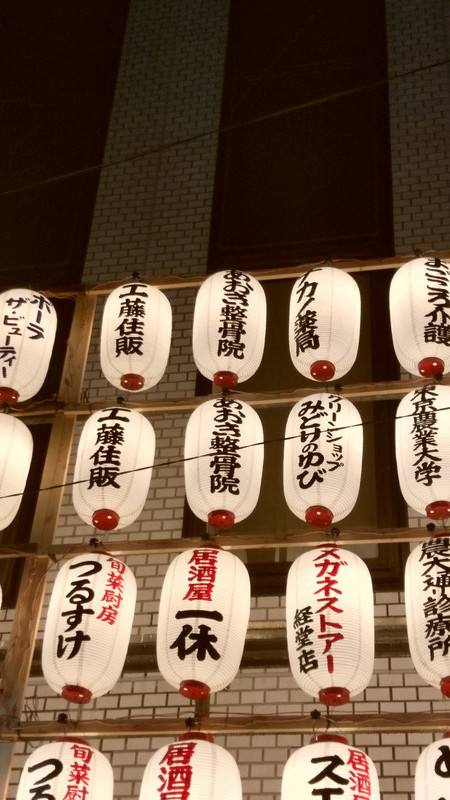 ポーラ
ザ・ビューティー
工藤住販
あおき整骨院
ナカノ薬局
まごころ介護
工藤住販
あおき整骨院
グリーンショップ
みどりのゆび
東京農業大学
旬菜厨房
つるすけ
居酒屋
一休
スガネストアー
経堂店
農大通り診療所
旬菜厨房
つる
居酒